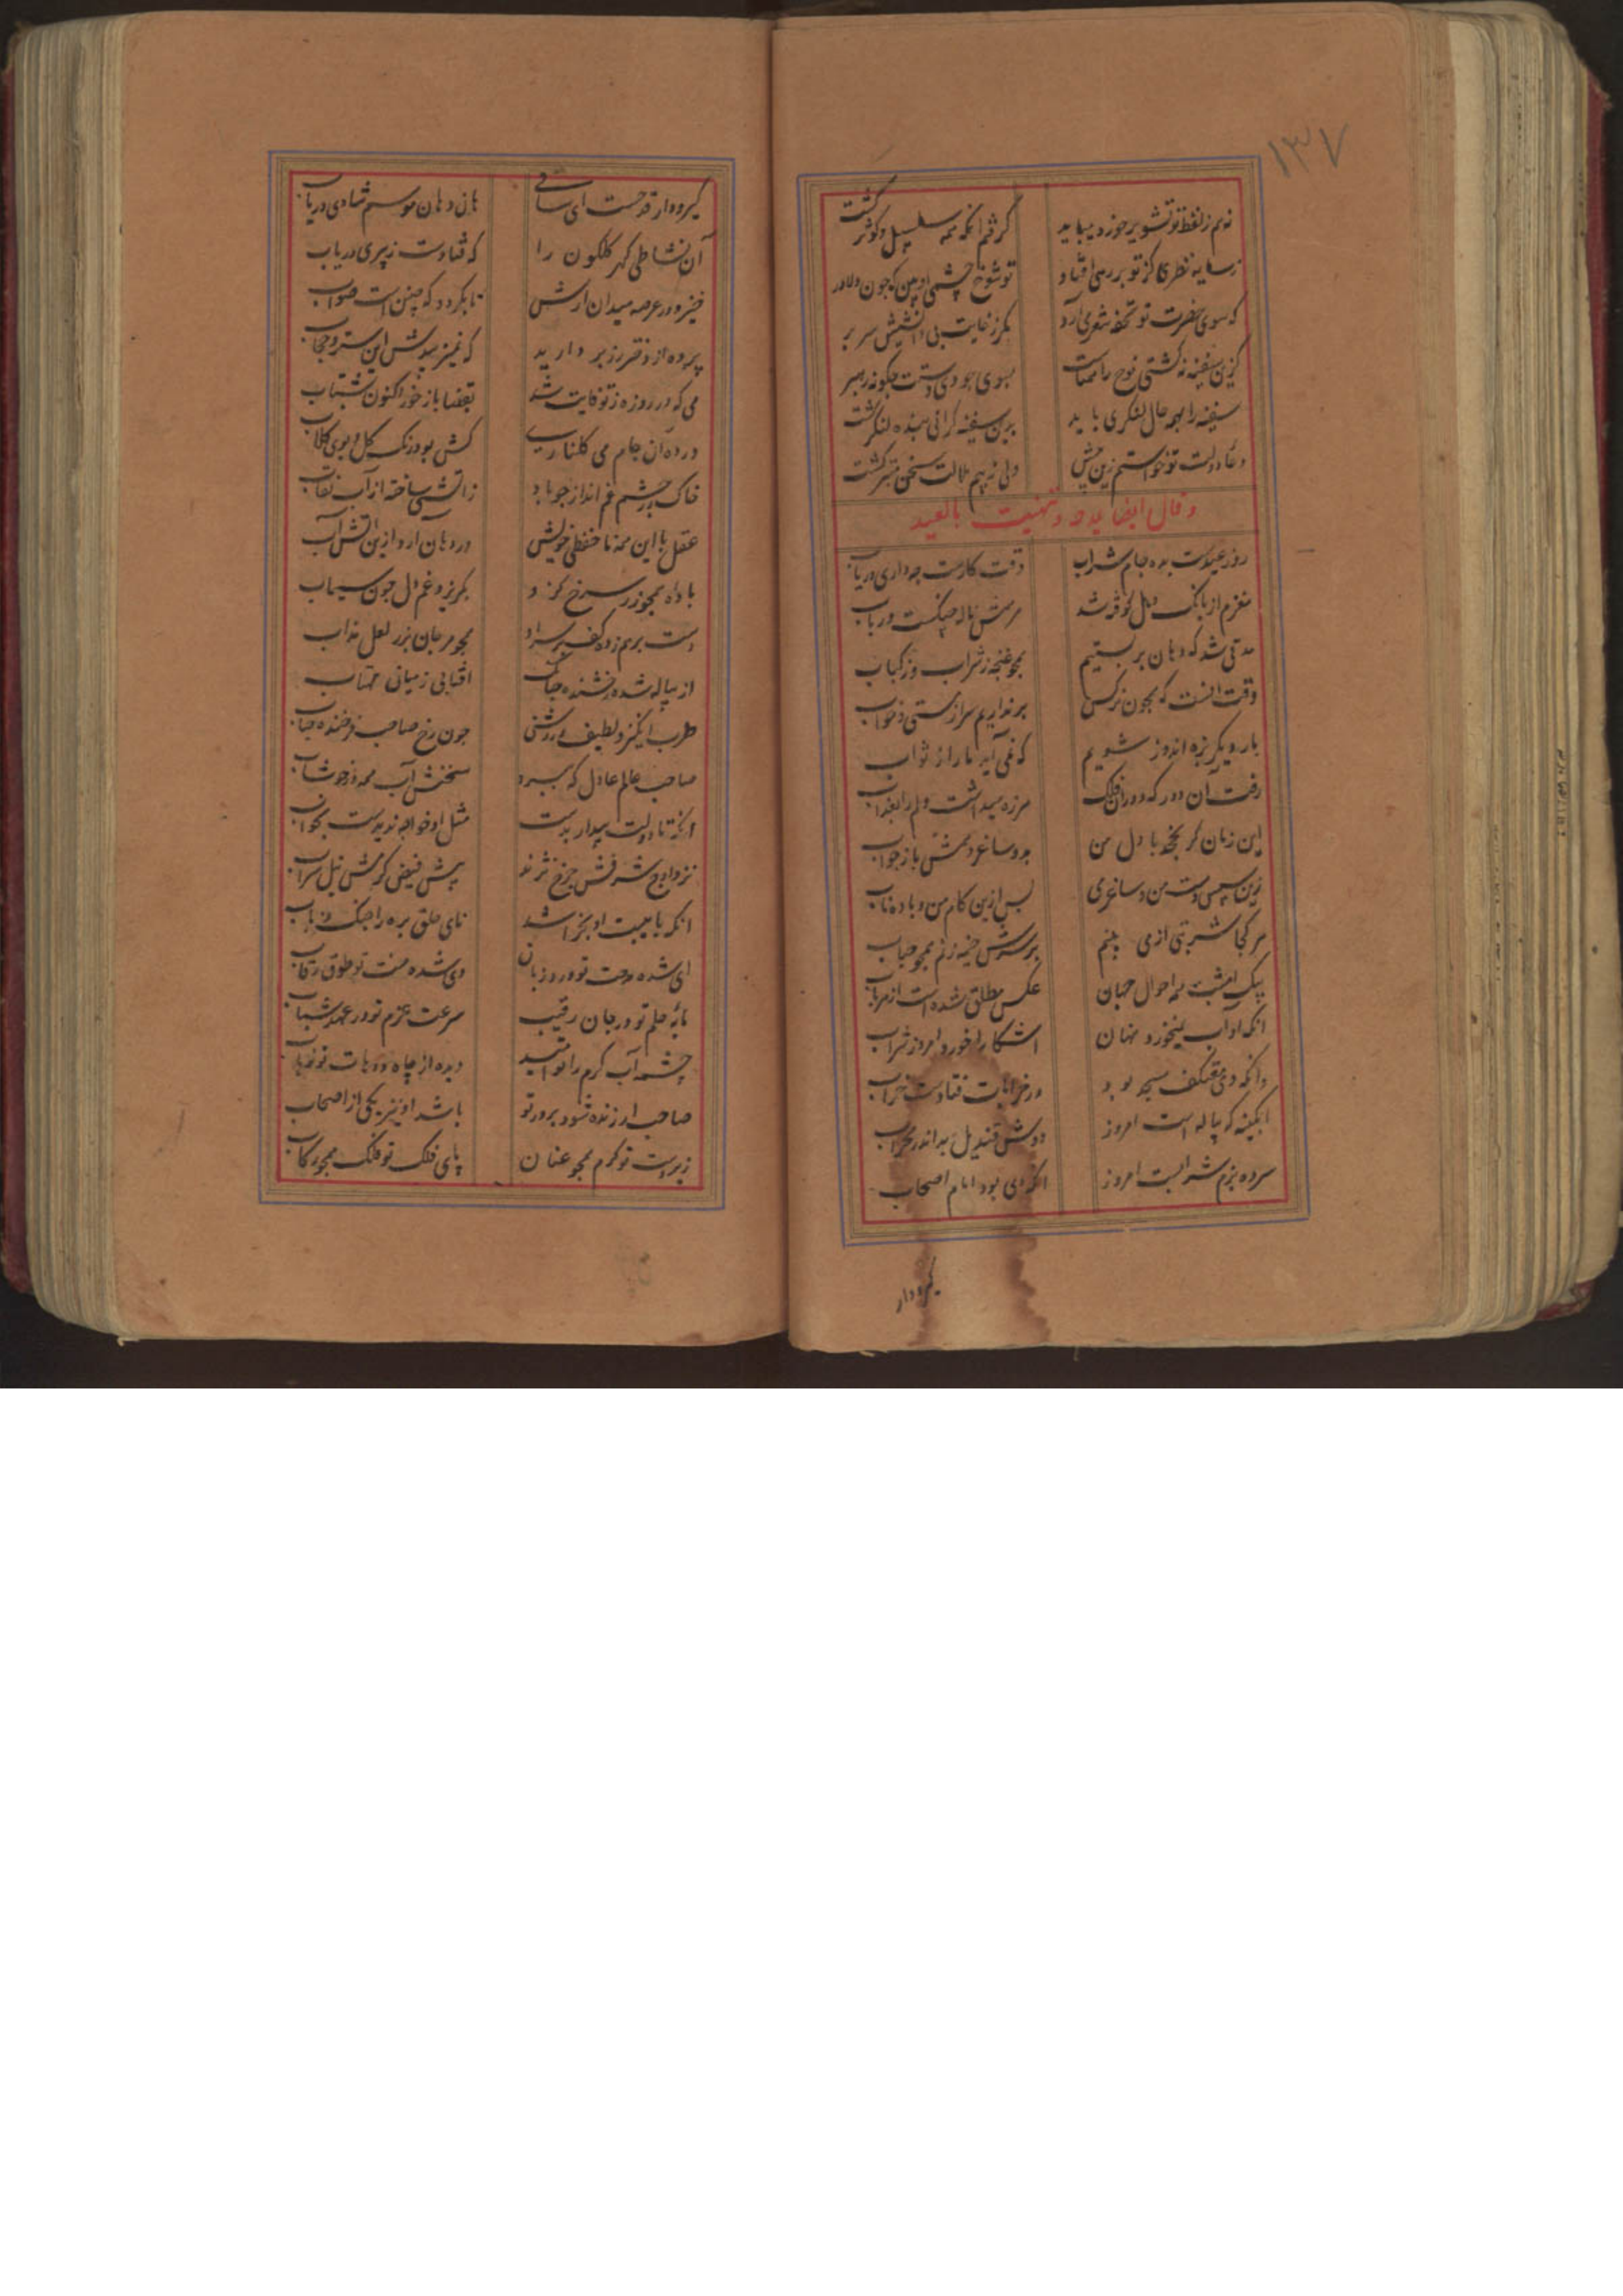 ۱۳۷
نه‌م ز لفظ تو تشویر خورد می‌باید گرفتم آنکه همه سلسبیل و کوثر گشت
ز سایه نظری کز تو بر رهی افتاد تو شوخ چشمی او بین که چون دلاور گشت
که سوی حضرت تو تحفه شعر می‌آرد مگر ز غایت بی دانشیش سر بر
کزین سفینه نه کشتی نوح را ماست بسوی جودی دستت چگونه رهبر
سفینه را بهمه حال لنگری باید برین سفینه گرانی بنده لنگر گشت
دعاء دولت تو خواستم زین پیش ولی ز بیم ملالت سخن مبتر گشت
و قال ایضا یمدحه و تهنیت بالعید
روز عیدست بده جام شراب وقت کارست چه داری دریاب
مغزم از بانک دهل کوفته شد مرهمش ناله چنگست و رباب
مدتی شد که دهان بر بستیم همچو غنچه ز شراب و ز کباب
وقت آنست که همچون نرکس برنداریم سر از مستی و خواب
بار دیگر بزه اندوز شویم که نمی آید ما را ز ثواب
رفت آن دور که دوران فلک هرزه میداشت دلم را بعذاب
این زمان گر بچخد با دل من بدو ساغر دهمش باز جواب
زین سپس دست من و ساغر می پس ازین کام من و باده ناب
هر کجا شربتی از می بینم بر سرش خیمه زنم همچو حباب
بیک امشب همه احوال جهان عکس مطلق شده است از هر باب
انکه او آب نمیخورد نهان آشکارا خورد امروز شراب
وانکه دی معتکف مسجد بود در خرابات فتادست خراب
آبگینه که پیاله است امروز دوش قندیل بد اندر محراب
سرده بزم شرابست امروز آنکه دی بود امام اصحاب
گیرودار
گیرودار قدحست ای ساقی هان و هان موسم شادی دریاب
آن نشاطی گهر گلگون را که فتادست ز پیری در یاب
خیز و در عرصه میدان آرش تا بگردد که چنین است صواب
پرده از دختر رز بر دارید که نمیزیبدش این ستر و حجاب
می که در روزه ز تو فایت شد بقضا باز خور اکنون بشتاب
در ده آن جام می گلناری کش بود رنگ گل و بوی گلاب
خاک در چشم غم انداز چو باد ز آتشی ساخته از آب نقاب
عقل با این همه نا حفظی خویش در دهان آرد ازین آتش آب
باده همچو زر سرخ کزو بگریزد غم دل چون سیماب
دست بر هم زده کفش بر سر او همچو مرجان بزر لعل مذاب
از پیاله شده رخشنده چنانک آفتابی ز میان مهتاب
طرب انگیز و لطیف و روشن چون رخ صاحب فرخنده جناب
صاحب عالم عادل که ببرد سخنش آب همه در خوشاب
آنکه تا دولت بیدار بدست مثل او خواجه ندیدست بخواب
نزد اوج شرفش چرخ نژند پیش فیض کرمش نیل سراب
انکه با هیبت او بخراشد نای حلق بره را چنگ ذئاب
ای شده مدحت تو ورد زبان وی شده منت تو طوق رقاب
مایه حلم تو در جان رقیب سرعت عزم تو در عهد شباب
چشمه آب کرم را توانید دیده از چاه
صاحب ار زنده شود بر در تو باشد او نیز یکی از اصحاب
زیر دست تو کرم همچو عنان پای فلک تو فلک همچو رکاب